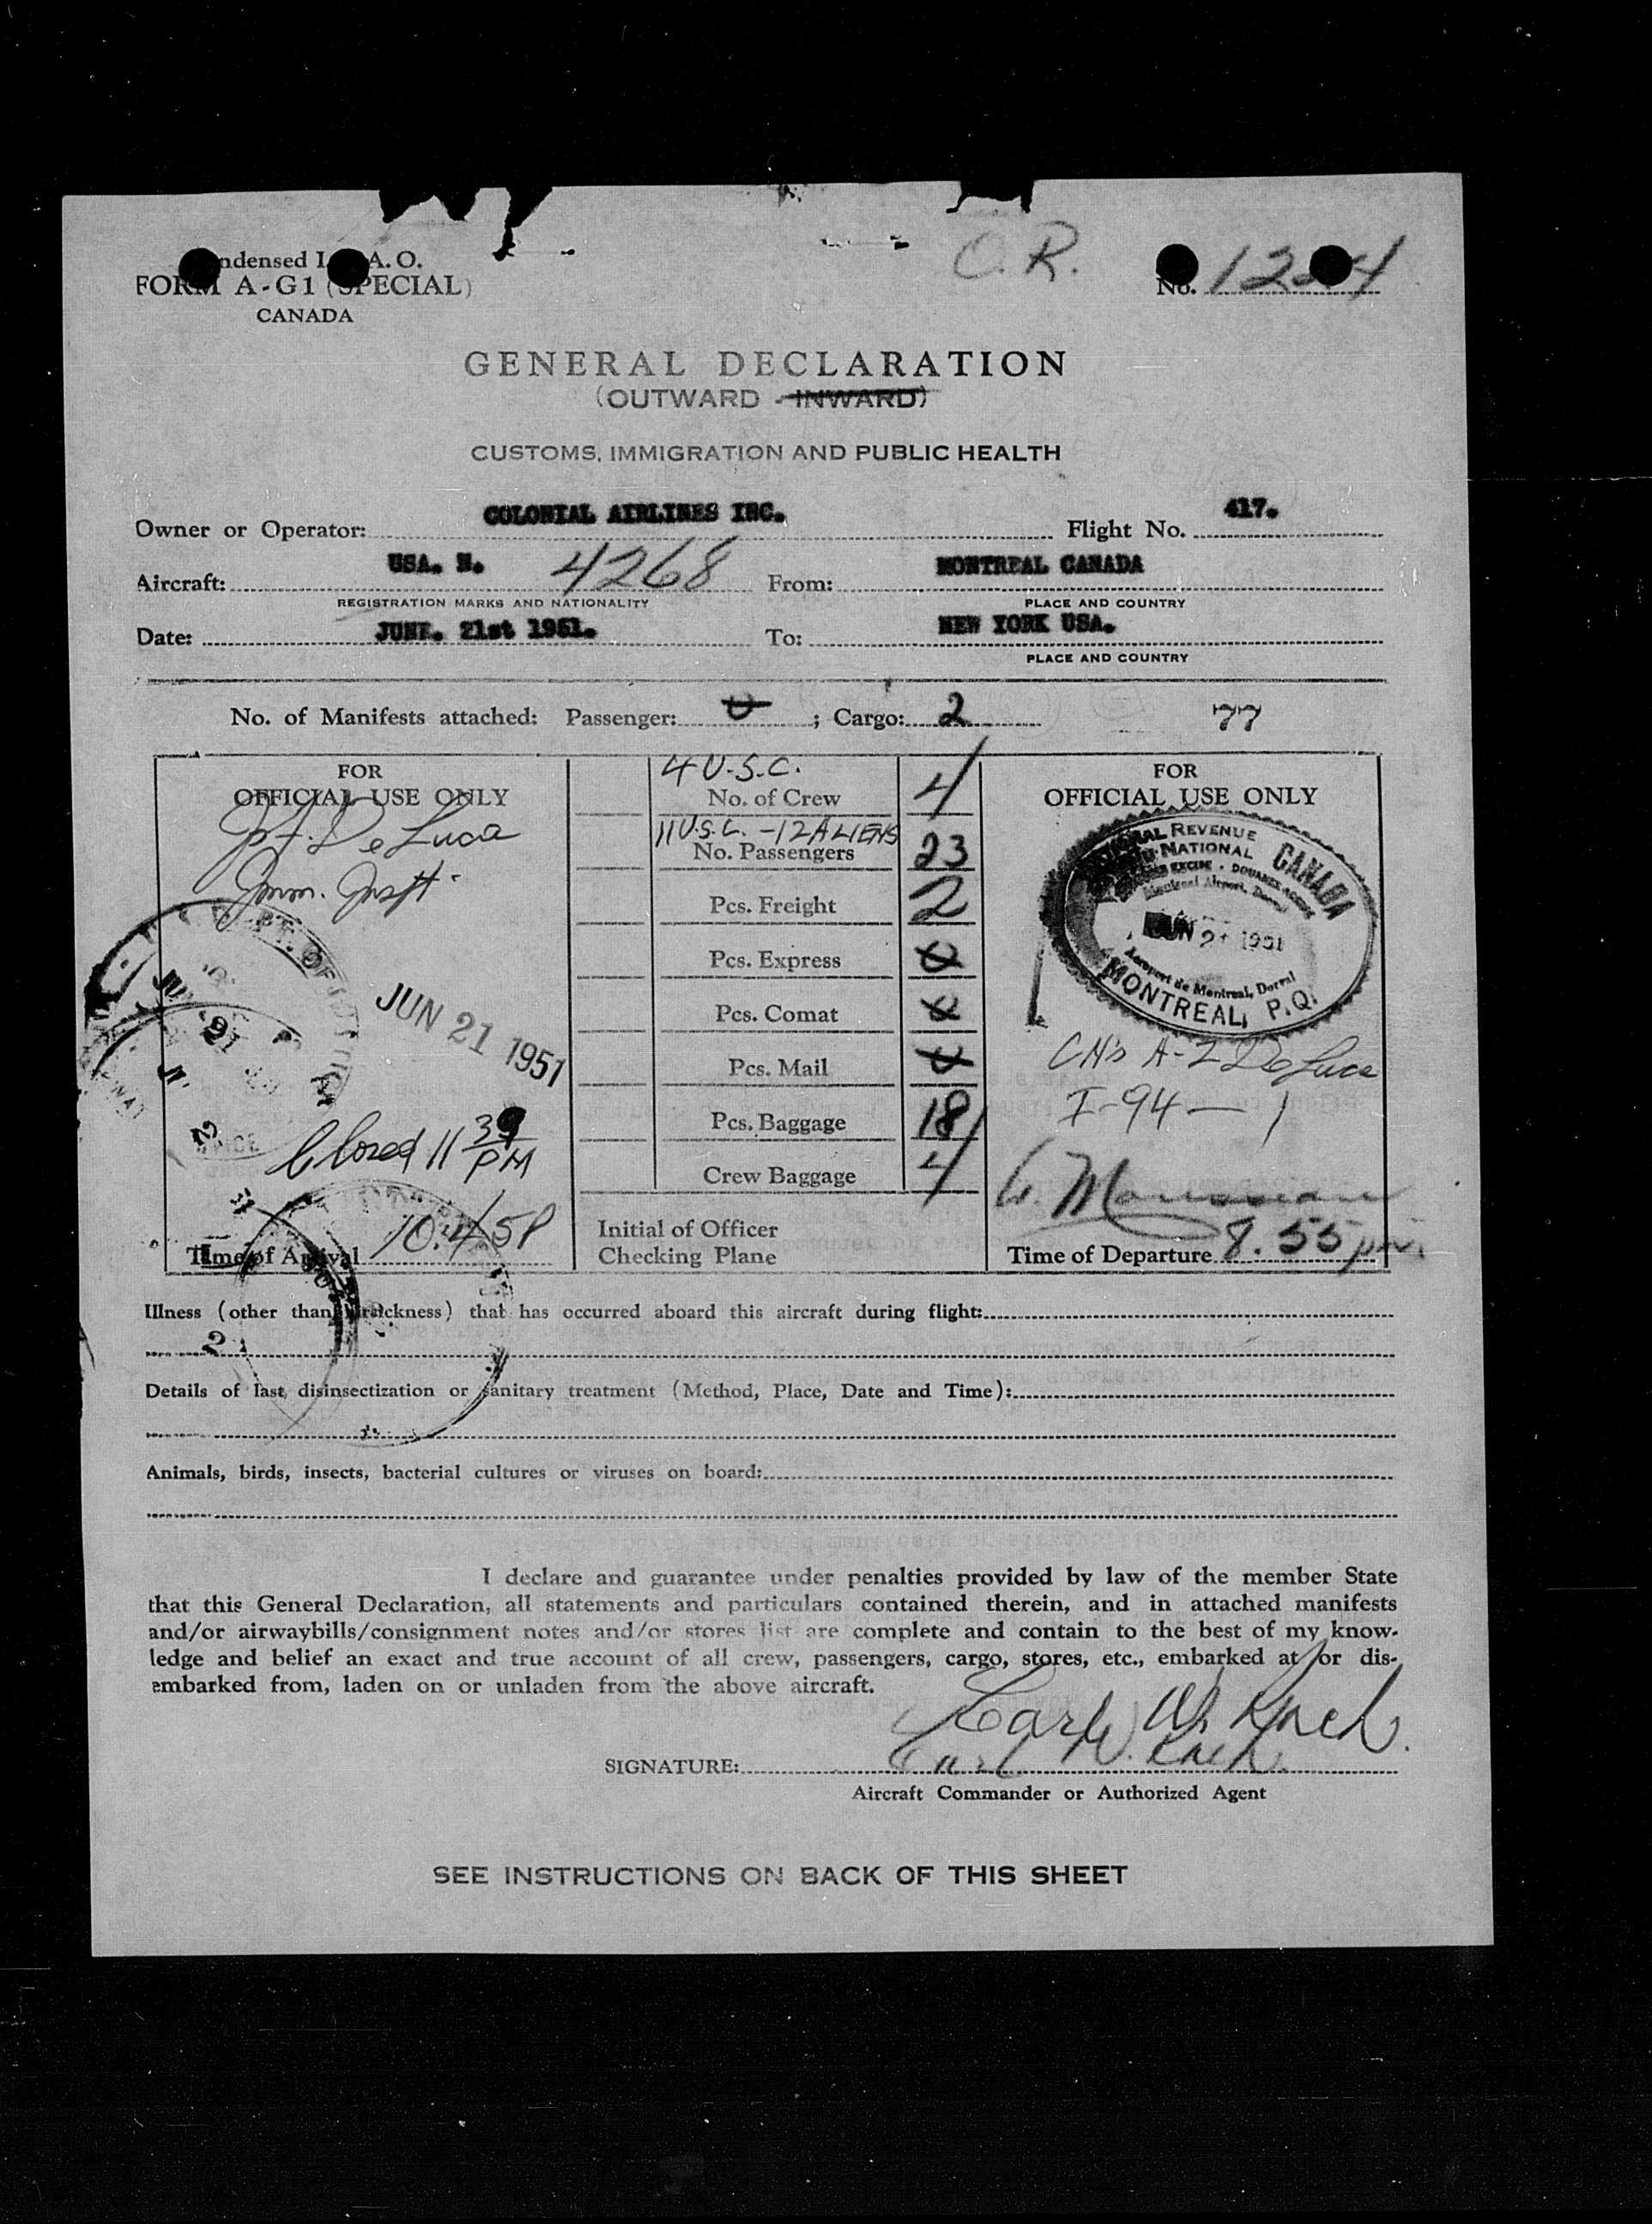 ndensed I A.O.
FORM A-G1 (SPECIAL)
CANADA
O.R.
No. 1224
GENERAL DECLARATION
(OUTWARD - INWARD)
CUSTOMS, IMMIGRATION AND PUBLIC HEALTH
Owner or Operator: COLONIAL AIRLINES INC. Flight No. 417.
Aircraft: USA. N. 4268 From: MONTREAL CANADA
REGISTRATION MARKS AND NATIONALITY PLACE AND COUNTRY
Date: JUNE. 21st 1951. To: NEW YORK USA.
PLACE AND COUNTRY
No. of Manifests attached: Passenger: 0 ; Cargo: 2 77
FOR
OFFICIAL USE ONLY
De Luca
Imm. Inspt.
JUN 21 1951
Closed 11 39 PM
Time of Arrival 10.45P
4 U.S.C.
No. of Crew 4
11 U.S.C. - 12 ALIENS
No. Passengers 23
Pcs. Freight 2
Pcs. Express 0
Pcs. Comat 0
Pcs. Mail 0
Pcs. Baggage 18
Crew Baggage 4
Initial of Officer
Checking Plane
FOR
OFFICIAL USE ONLY
REVENUE
NATIONAL
CANADA
EXCISE - DOUANES
Montreal Airport, Dorval
JUN 21 1951
Aeroport de Montreal, Dorval
MONTREAL, P.Q.
A-2 DeLuca
I-94 — 1
Time of Departure 8.55 pm.
Illness (other than airsickness) that has occurred aboard this aircraft during flight:
Details of last disinsectization or sanitary treatment (Method, Place, Date and Time):
Animals, birds, insects, bacterial cultures or viruses on board:
I declare and guarantee under penalties provided by law of the member State
that this General Declaration, all statements and particulars contained therein, and in attached manifests
and/or airwaybills/consignment notes and/or stores list are complete and contain to the best of my know-
ledge and belief an exact and true account of all crew, passengers, cargo, stores, etc., embarked at or dis-
embarked from, laden on or unladen from the above aircraft.
Carl W. Koch.
SIGNATURE: Carl W. Koch.
Aircraft Commander or Authorized Agent
SEE INSTRUCTIONS ON BACK OF THIS SHEET